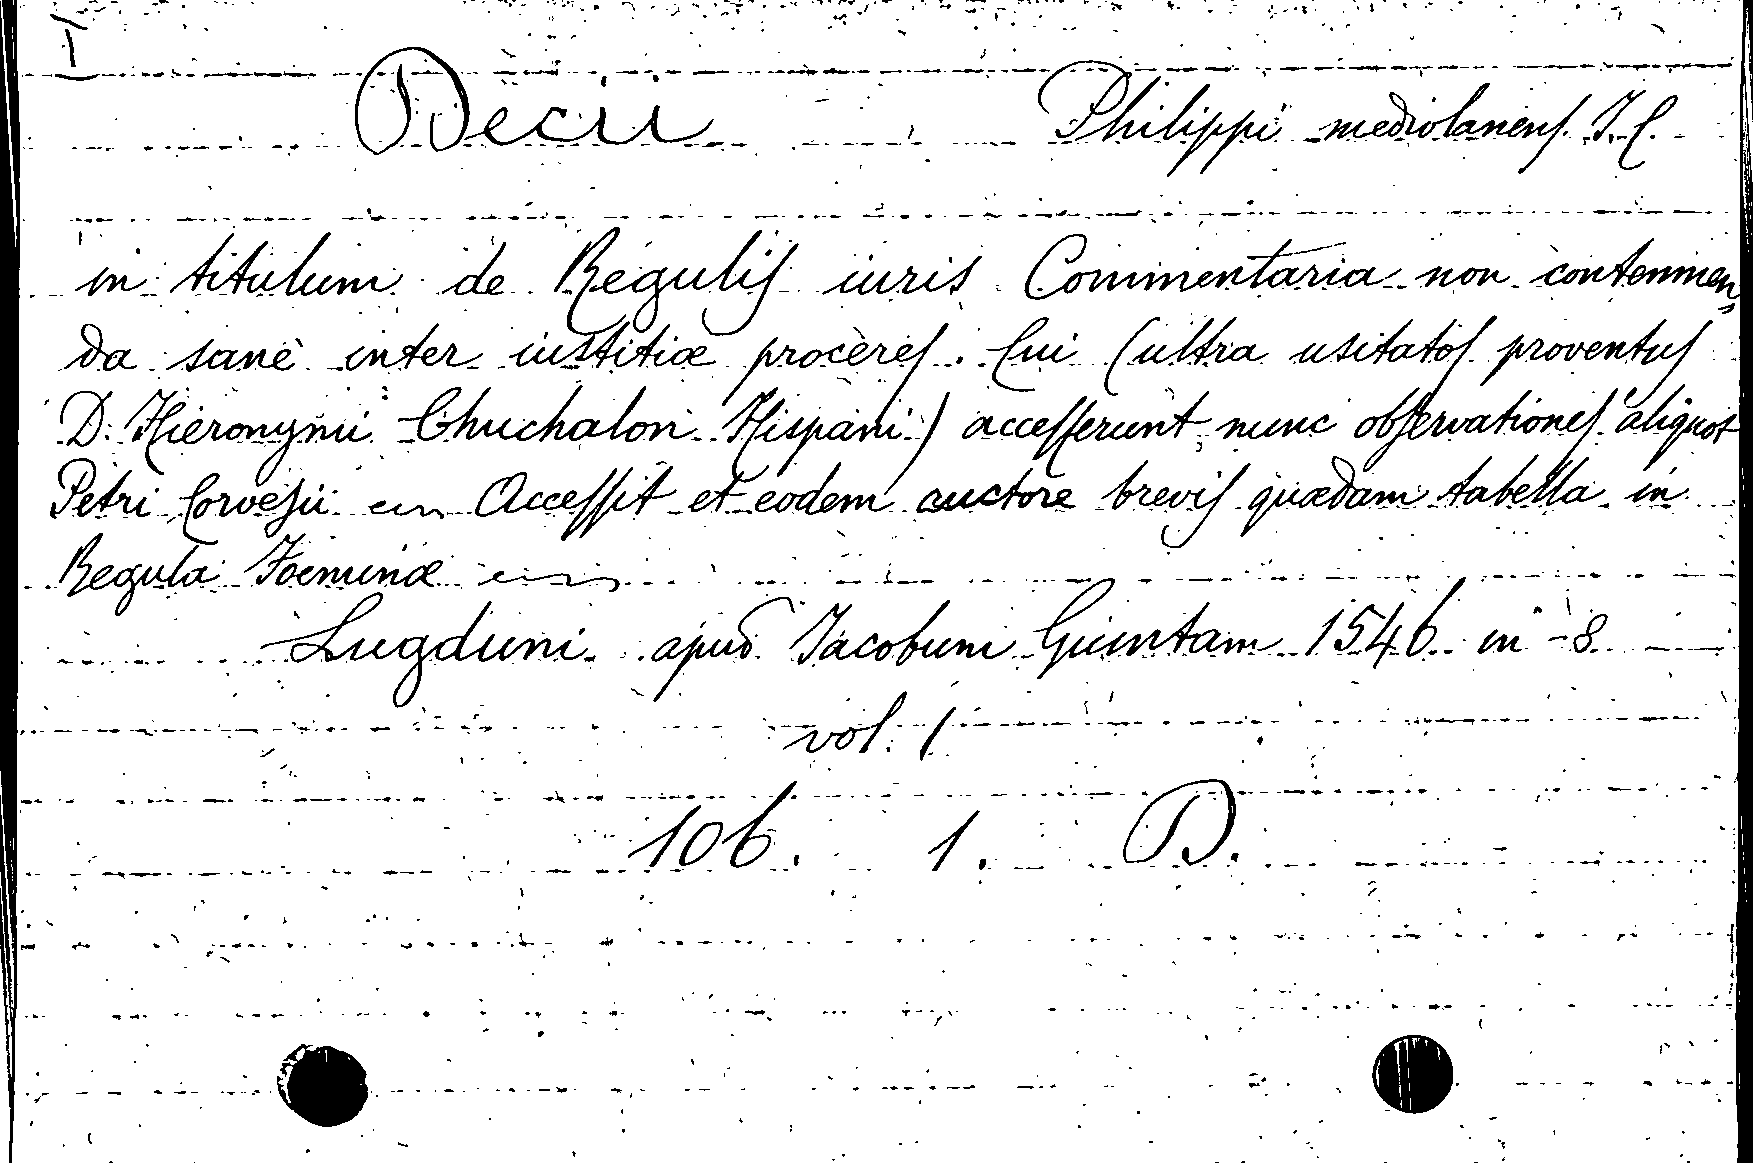 I
Decii Philippi mediolanens. I. C.
in titulum de Regulis iuris Commentaria non contemnen
da sanè inter iustitiæ procères. Cui (ultra usitatos proventus
D. Hieronymi Chuchalon Hispani) accesserunt nunc observationes aliquot
Petri Corvesii Accessit et eodem auctore brevis quædam tabella in
Regula Foeminæ
Lugduni apud Jacobum Giuntam 1546 in -8
vol. 1
106. 1. D.